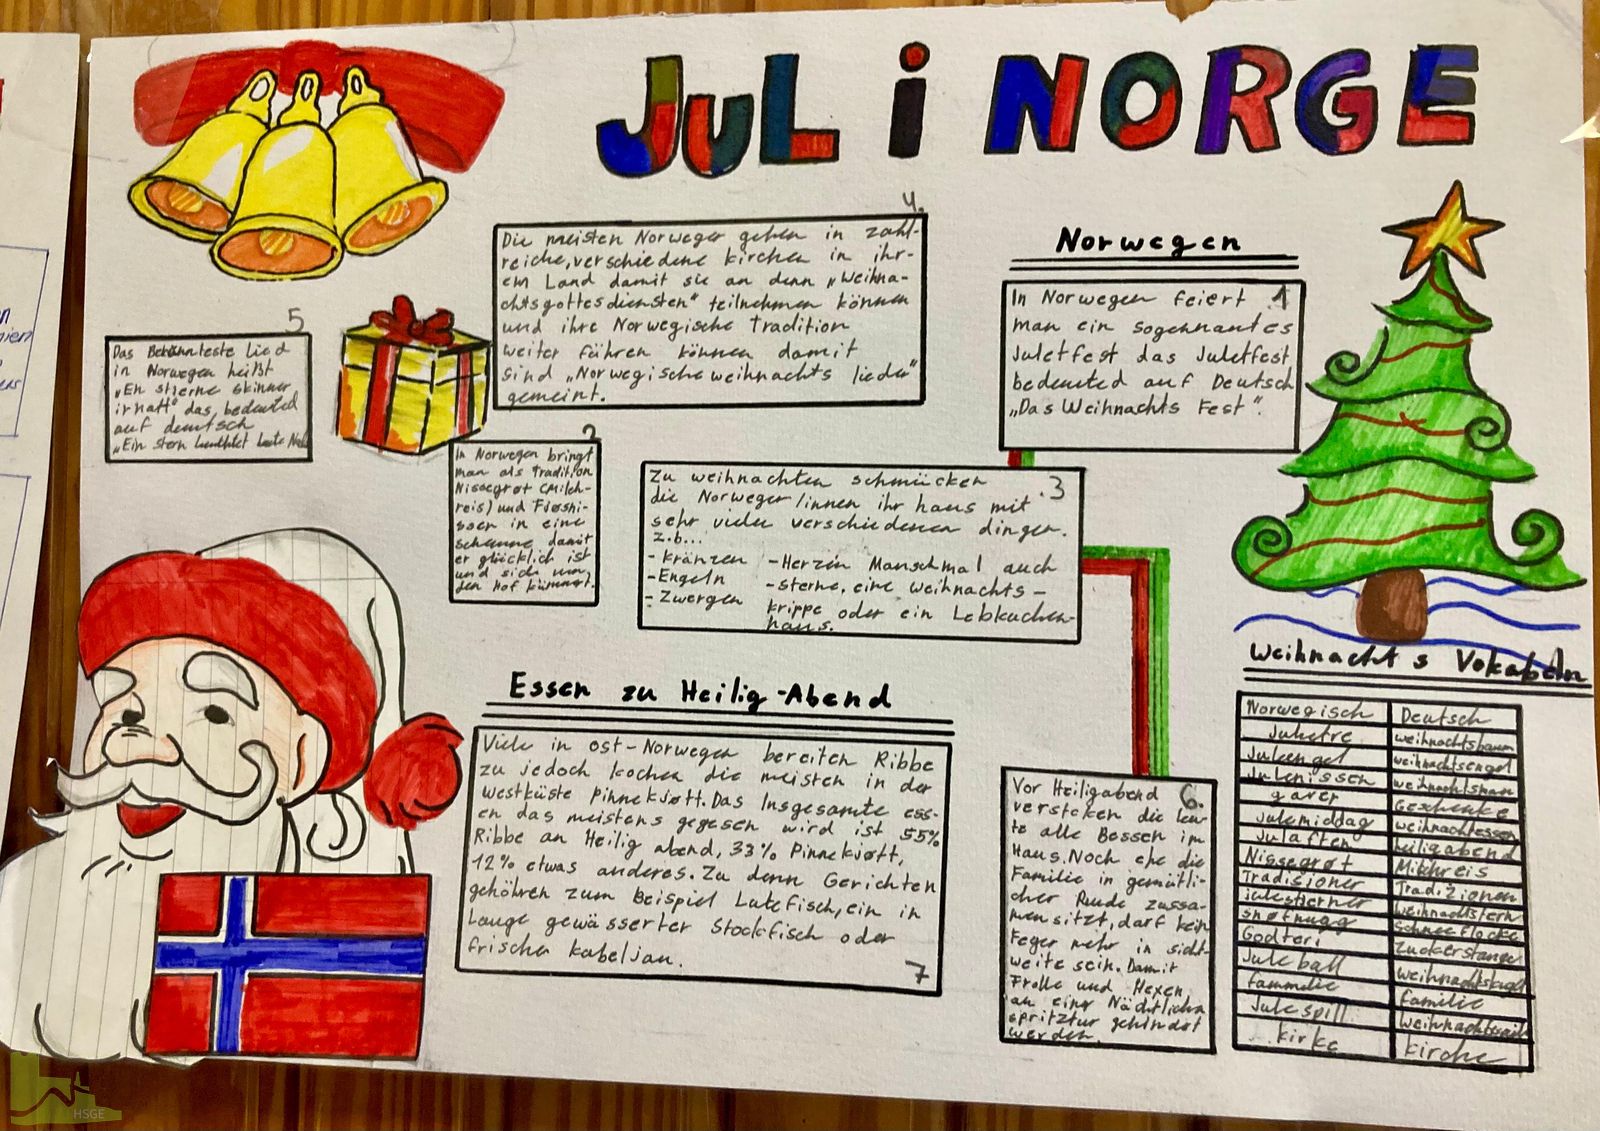 JUL i NORGE
4.
Die meisten Norweger gehen in zahl-
reiche, verschiedene kirchen in ihr-
em Land damit sie an denn „Weihna-
chtsgottesdiensten" teilnehmen können
und ihre Norwegische Tradition
weiter führen können damit
sind „Norwegische weihnachts lieder"
gemeint.
Norwegen
1
In Norwegen feiert
man ein sogennantes
Juletfest das Juletfest
bedeuted auf Deutsch
„Das Weihnachts Fest".
5
Das Bekannteste Lied
in Norwegen heißt
„En stjerne skinner
i natt" das bedeuted
auf deutsch
„Ein stern leuchtet
2
In Norwegen bringt
man als Tradition
Nissegrøt (Milch-
reis) und
in eine
scheune damit
er glücklich ist
und sich um
den Hof kümmert.
.3
Zu weihnachten schmücken
die Norweger/innen ihr haus mit
sehr vielen verschiedenen dingen.
z.b...
- kränzen
- Engeln
- Zwergen
- Herzen Manschmal auch
- sterne, eine weihnachts-
krippe oder ein Lebkuchen-
haus.
Essen zu Heilig-Abend
Viele in ost-Norwegen bereiten Ribbe
zu jedoch kochen die meisten in der
westküste Pinnekjøtt. Das Insgesamte ess-
en das meistens gegesen wird ist 55%
Ribbe an Heilig abend, 33% Pinnekjøtt,
12% etwas anderes. Zu denn Gerichten
gehöhren zum Beispiel Lutefisch, ein in
Lauge gewässerter Stockfisch oder
frischer kabeljau.
7
6.
Vor Heiligabend
verstecken die leu-
te alle Bessen im
Haus. Noch ehe die
Familie in gemütli-
cher Runde zussa-
men sitzt, darf kein
Feger mehr in sicht-
weite sein. Damit
Trolle und Hexen
an einer Nächtlichen
spritztur gehindert
werden.
Weihnacht s Vokabeln
Norwegisch Deutsch
Juletre weihnachtsbaum
Juleengel weihnachtsengel
Julenissen weihnachtsman
gaver Geschenke
Julemiddag weihnachtessen
Julaften heiligabend
Nissegrøt Milchreis
Tradisjoner Tradizionen
julestjerner weihnachtstern
snøfnugg Schneeflocke
Godteri Zuckerstange
Juleball weihnachtskugel
fammelie familie
Julespill
kirke kirche
HSGE